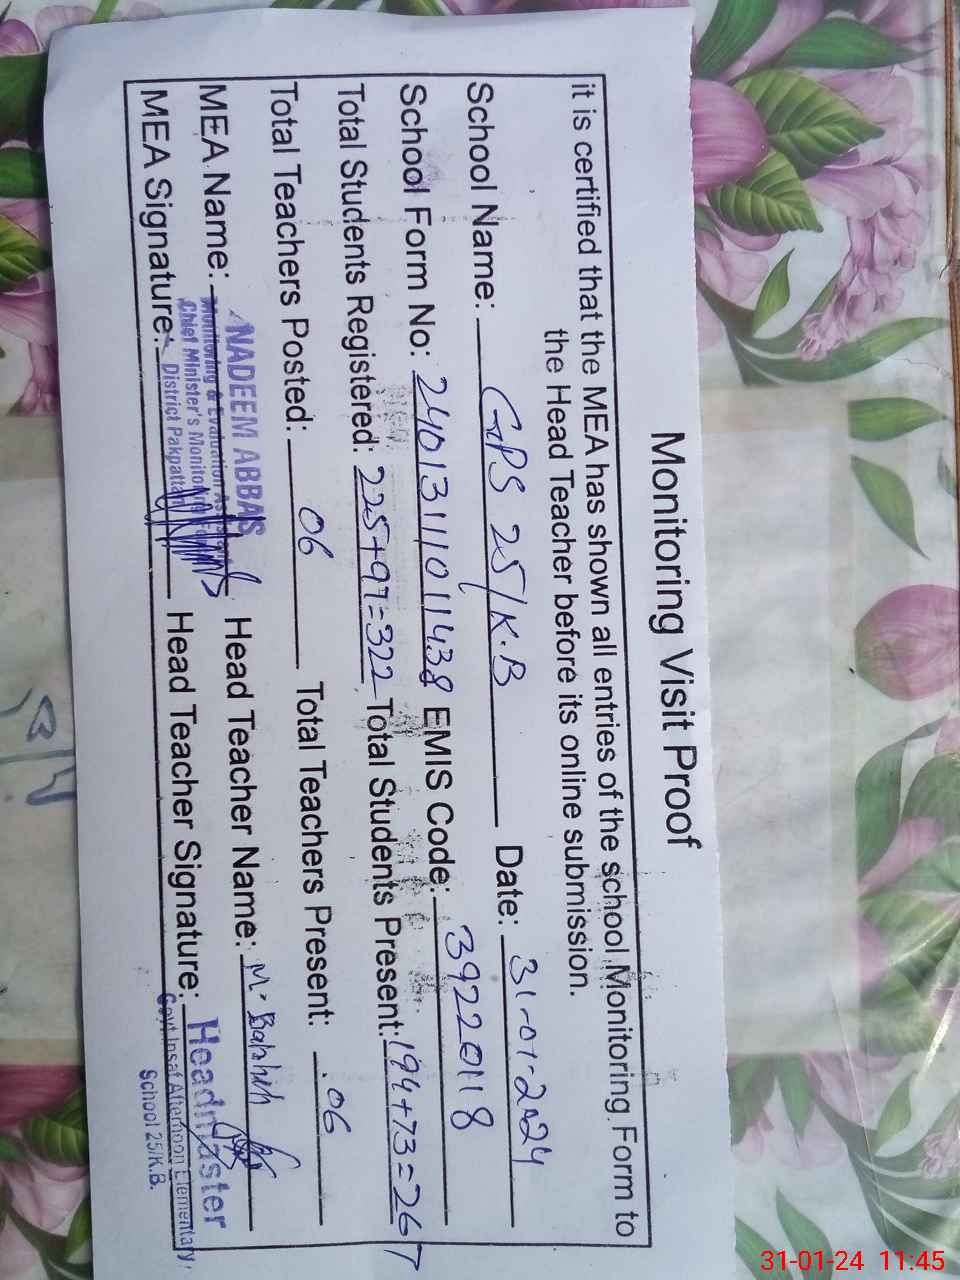 Monitoring Visit Proof
it is certified that the MEA has shown all entries of the school Monitoring Form to
the Head Teacher before its online submission.
School Name: GPS 25/K.B Date: 31-01-2024
School Form No: 24013111011438 EMIS Code: 39220118
Total Students Registered: 225+97=322 Total Students Present: 194+73=267
Total Teachers Posted: 06 Total Teachers Present: 06
MEA Name: NADEEM ABBAS Head Teacher Name: M. Bashir
Monitoring & Evaluation
Chief Minister's Monitoring
District Pakpattan
MEA Signature: Head Teacher Signature: Headmaster
Govt. Insaf Afternoon Elementary
School 25/K.B.
31-01-24 11:45